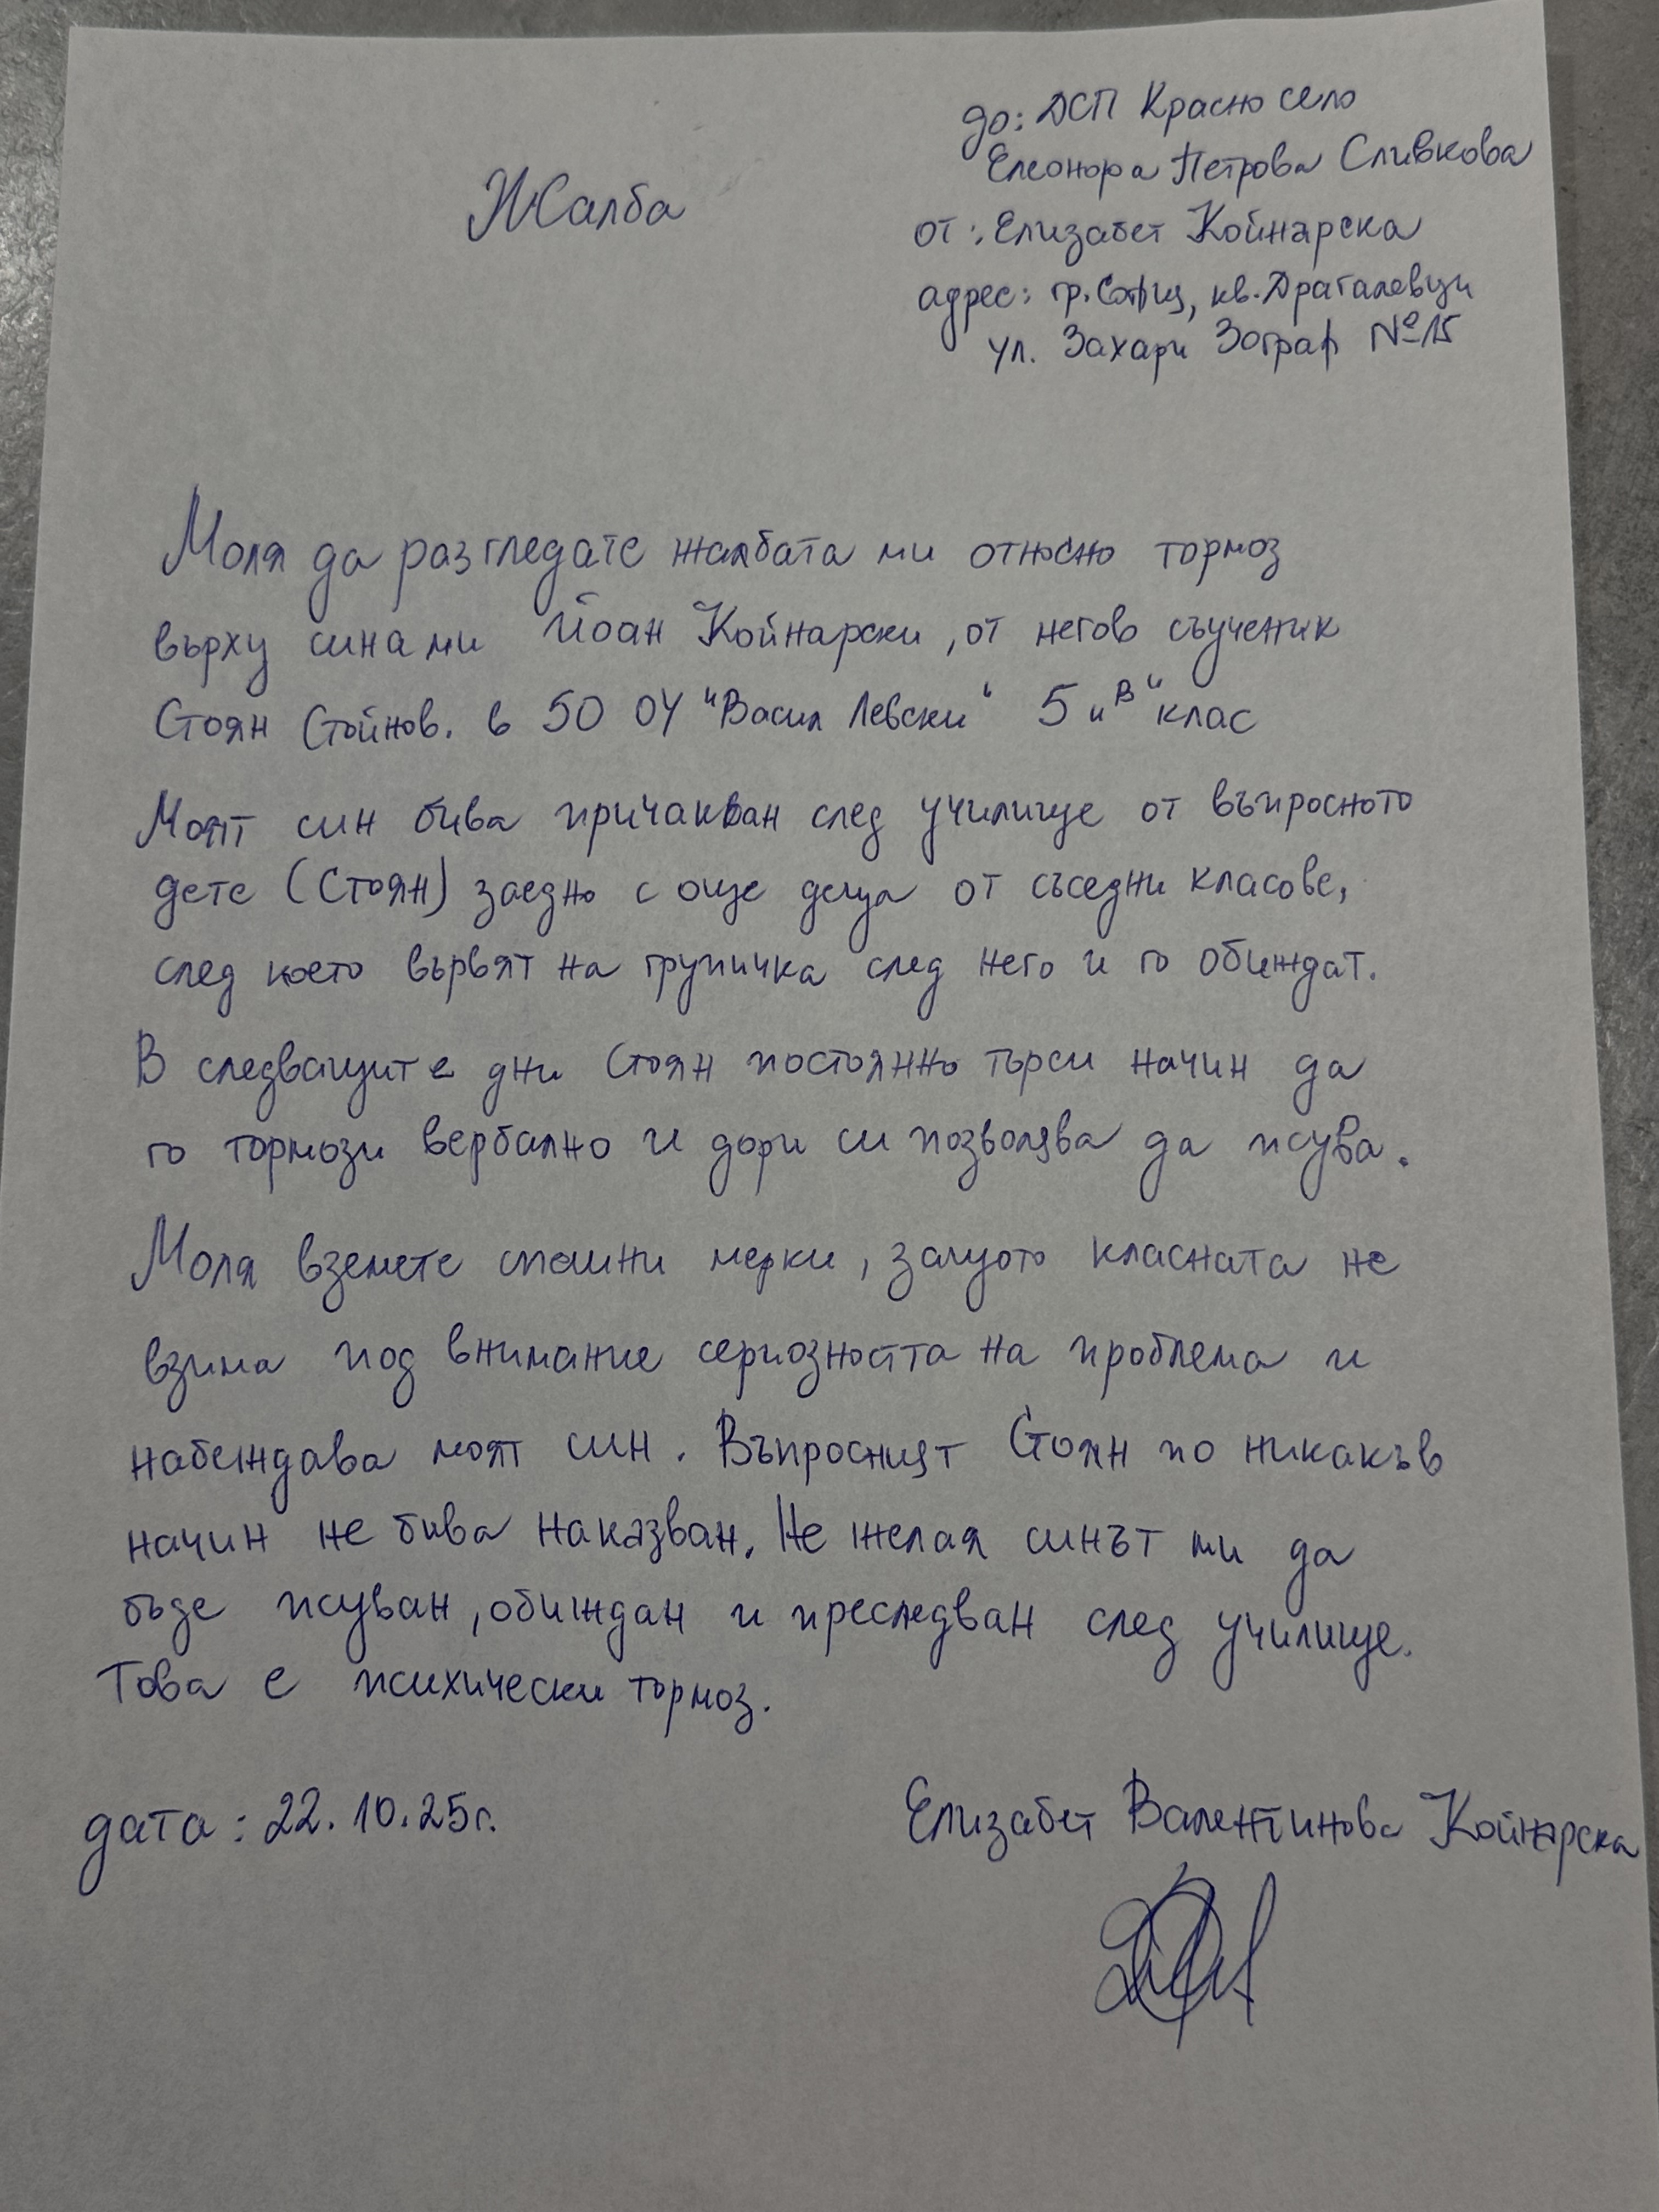 до: ДСП Красно село
Елеонора Петрова Сливкова
Жалба
от: Елизабет Койнарска
адрес: гр. София, кв. Драгалевци
ул. Захари Зограф №15
Моля да разгледате жалбата ми относно тормоз
върху сина ми Йоан Койнарски, от негов съученик
Стоян Стойнов. в 50 ОУ "Васил Левски" 5 "В" клас
Моят син бива причакван след училище от въпросното
дете (Стоян) заедно с още деца от съседни класове,
след което вървят на групичка след него и го обиждат.
В следващите дни Стоян постоянно търси начин да
го тормози вербално и дори си позволява да псува.
Моля вземете спешни мерки, защото класната не
взима под внимание сериозността на проблема и
набеждава моят син. Въпросният Стоян по никакъв
начин не бива наказван. Не желая синът ми да
бъде псуван, обиждан и преследван след училище.
Това е психически тормоз.
дата: 22.10.25г.
Елизабет Валентинова Койнарска